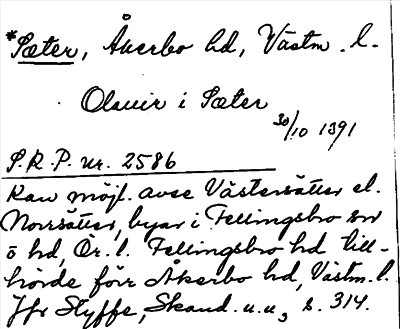 *Sæter, Åkerbo hd, Västm. l.
Olauir i Sæter
30/10 1391
S.R.P. nr. 2586
Kan möjl. avse Västersätter el.
Norrsätter, byar i Fellingsbro sn
o hd, Ör. l. Fellingsbro hd till-
hörde förr Åkerbo hd, Västm. l.
Jfr Styffe, Skand. u.u., s. 314.